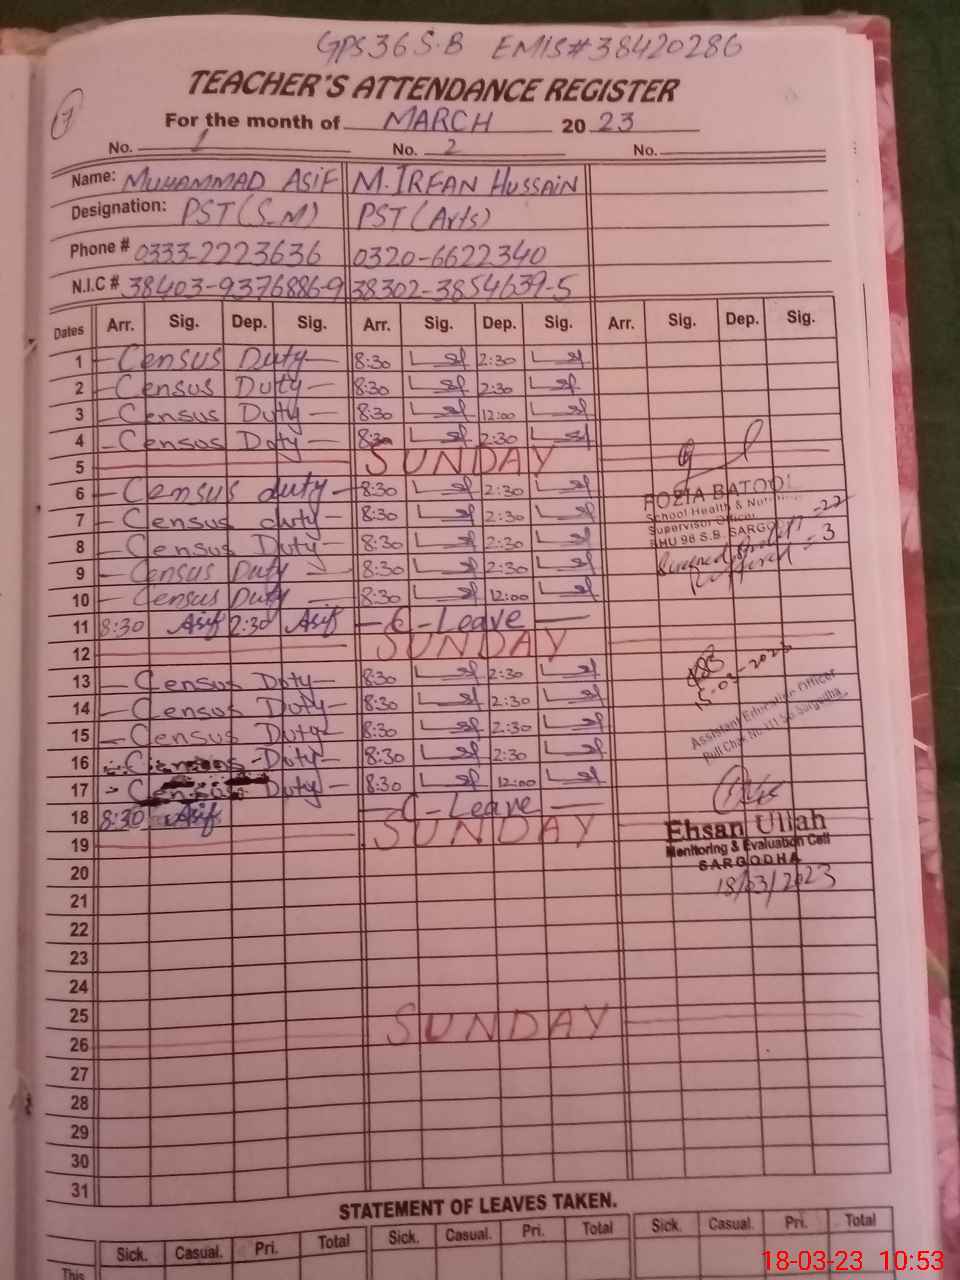 GPS 36 S.B EMIS# 38420286
TEACHER'S ATTENDANCE REGISTER
7
For the month of MARCH 2023
No. 1 No. 2 No.
Name: MUHAMMAD ASIF M. IRFAN HUSSAIN
Designation: PST (S-M) PST (Arts)
Phone # 0333-2223636 0320-6622340
N.I.C # 38403-9376886-9 38302-3854639-5
Dates Arr. Sig. Dep. Sig. Arr. Sig. Dep. Sig. Arr. Sig. Dep. Sig.
1 - Census Duty - 8:30 2:30
2 - Census Duty - 8:30 2:30
3 - Census Duty - 8:30 12:00
4 - Census Duty - 8:30 2:30
5 SUNDAY
6 - Census duty - 8:30 2:30
7 - Census duty - 8:30 2:30
8 - Census Duty - 8:30 2:30
9 - Census Duty - 8:30 2:30
10 - Census Duty 8:30 12:00
11 8:30 Asif 2:30 Asif - C - Leave -
12 SUNDAY
13 - Census Duty - 8:30 2:30
14 - Census Duty - 8:30 2:30
15 - Census Duty - 8:30 2:30
16 Duty - 8:30 2:30
17 - Census Duty - 8:30 12:00
18 8:30 Asif - C - Leave -
19 SUNDAY
20
21
22
23
24
25
26 SUNDAY
27
28
29
30
31
FOZIA BATOOL
School Health &
Supervisor
BHU 98 S.B. SARGO
15-03-2023
Assistant Education Officer
Sargodha
Ehsan Ullah
Monitoring & Evaluation Cell
SARGODHA
18/03/2023
STATEMENT OF LEAVES TAKEN.
Sick. Casual. Pri. Total Sick. Casual. Pri. Total Sick. Casual. Pri. Total
This
18-03-23 10:53